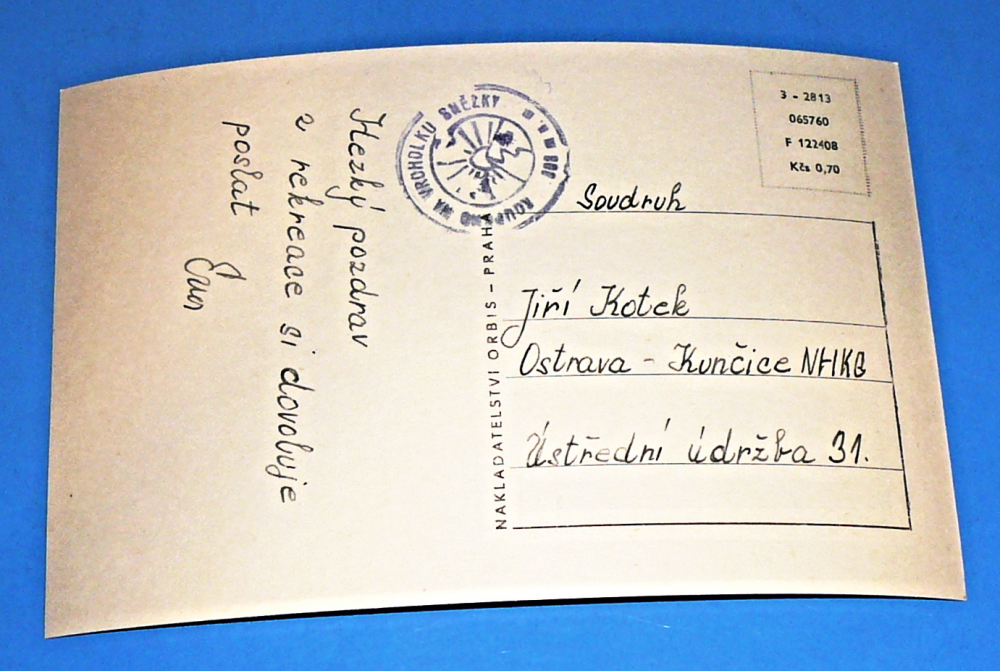 Hezký pozdrav
z rekreace si dovoluje
poslat
KOUPENO NA VRCHOLKU SNĚŽKY
3 - 2813
065760
F 122408
Kčs 0,70
Soudruh
Jiří Kotek
Ostrava - Kunčice NHKG
Ústřední údržba 31.
NAKLADATELSTVÍ ORBIS - PRAHA